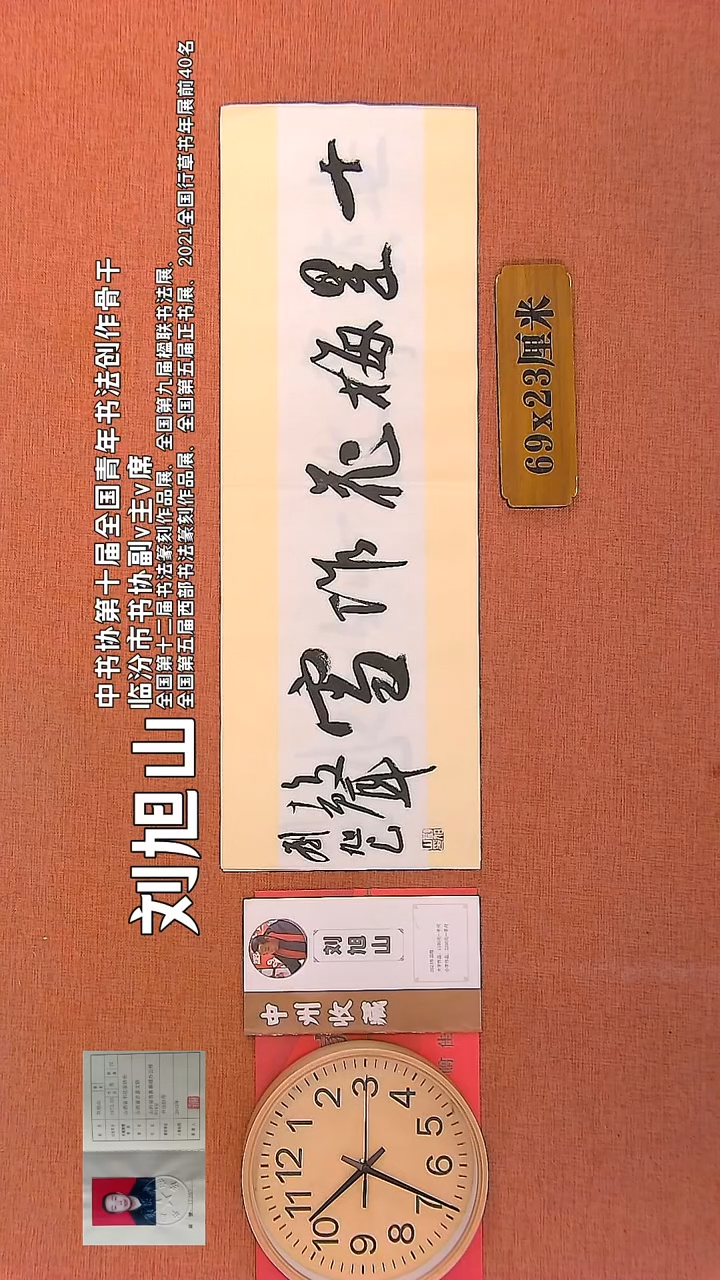 中书协第十届全国青年书法创作骨干
临汾市书协副v主v席
全国第十二届书法篆刻作品展、全国第九届楹联书法展、
全国第五届西部书法篆刻作品展、全国第五届正书展、2021全国行草书年展前40名
刘旭山
十里梅花作雪聲
69x23厘米
刘旭山
中州收藏
12
1
2
3
4
5
6
7
8
9
10
11